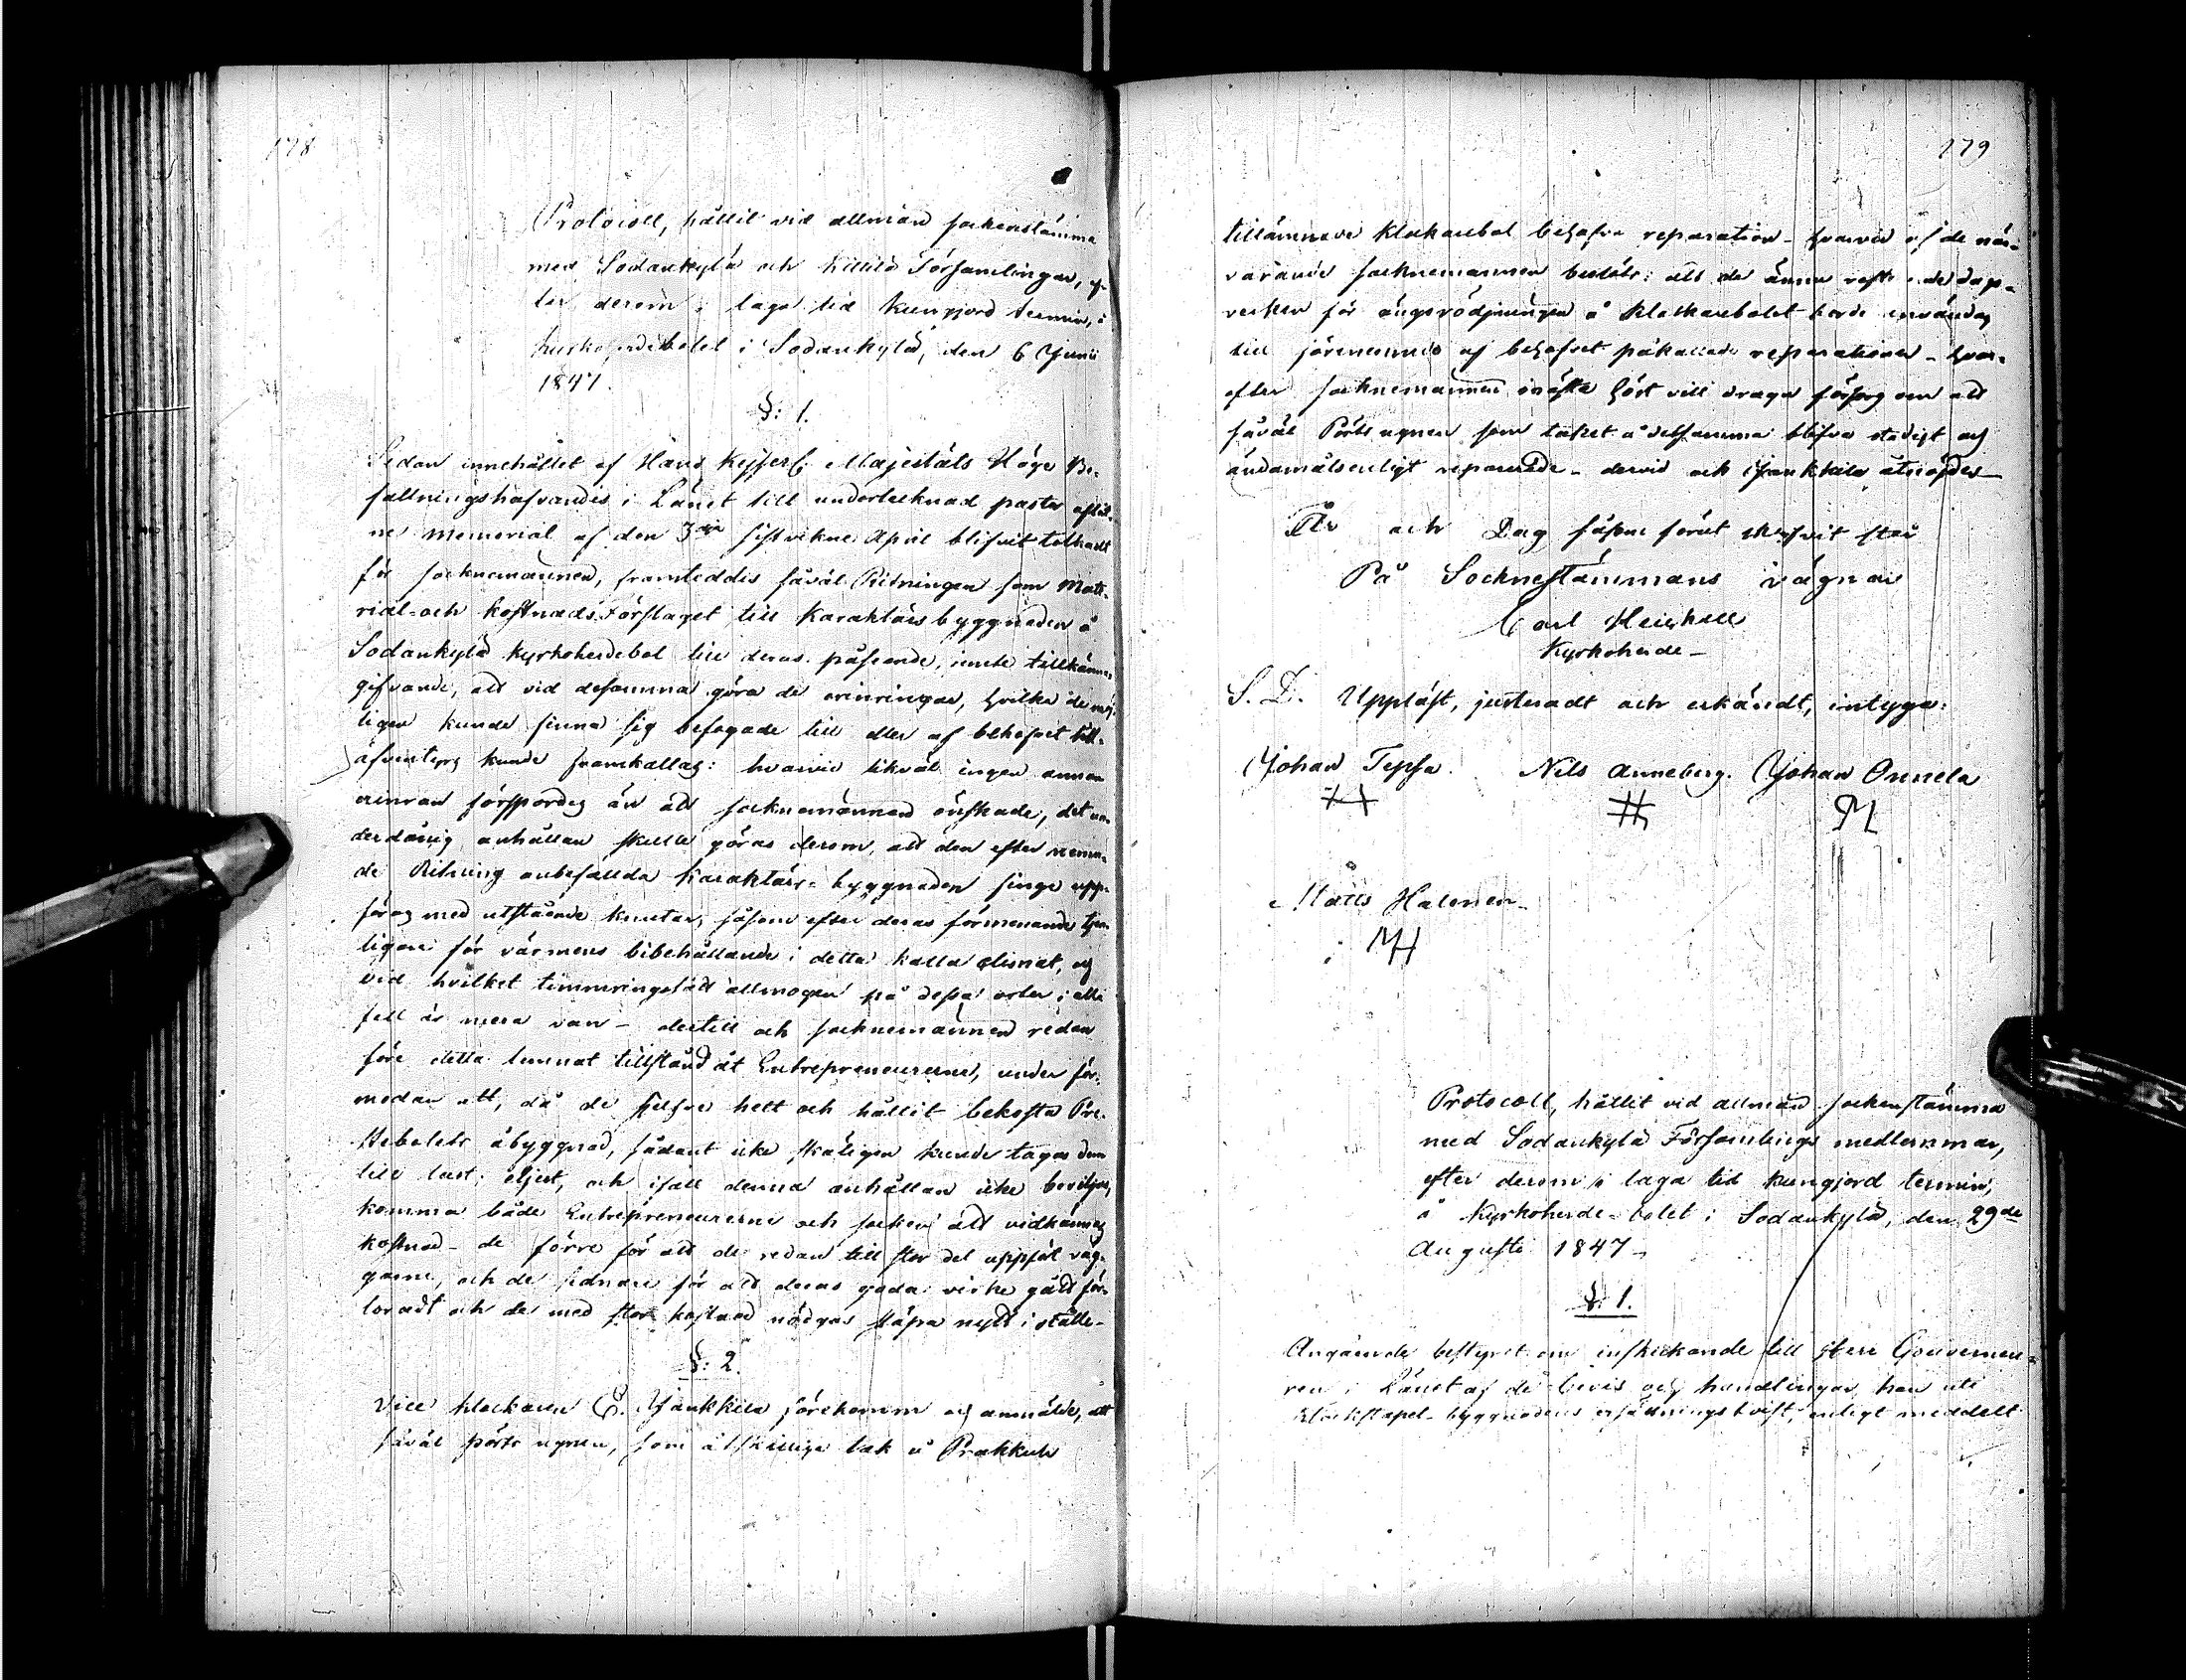 178
Protocoll, hållit vid allmän sockenstämma
med Sodankylä och Kittilä Församlingar, ef-
ter derom i laga tid kungjord termin, å
Kyrkoherdebolet i Sodankylä, den 6 Junii
1847.
§: 1.
Sedan innehållet af Hans Kejserl. Majestäts Höge Be-
fallningshafvandes i Länet till undertecknad pastor aflåt-
ne memorial af den 3dje sistvikne April blifvit tolkadt
för socknemännen, framteddis såväl Ritningen som Mate-
rial- och kostnads Förslaget till Karaktärsbyggnaden å
Sodankylä Kyrkoherdebol till deras påseende, under tillkänna-
gifvande, att vid desamma göra de erinringar, hvilka de möj-
ligen kunde finna sig befogade till eller af behofvet
äfventyrs kunde framkallas: hvarvid likväl ingen annan
erinran förspordes än att socknemännen önskade, det un-
derdånig anhållan skulle göras derom, att den efter nämn-
de Ritning anbefallda Karaktärs-byggnaden finge upp-
föras med utstående knutar, såsom efter deras förmenande tjen-
ligare för värmens bibehållande i detta kalla climat, och
vid hvilket timmringssätt allmogen på dessa orter i alla
fall är mera van - dertill och socknemännen redan
före detta lemnat tillstånd åt Entrepreneurerne, under för-
modan att, då de sjelfve helt och hållit bekosta Pre-
stebolets åbyggnad, sådant icke skäligen kunde tagas dem
till last; eljest, och ifall denna anhållan icke beviljas,
komma både Entrepreneurerne och socken att vidkännas
kostnad - de förre för att de redan till stor del uppfört väg-
garne, och de sednare för att deras goda virke gått för-
loradt och de med stor kostnad nödgas släpa nytt i stället -
§: 2.
Vice klockaren E. Jankkila förekomm och anmälde, att
såväl pörts ugnen, som åtskillige tak å Prakkula
179
tillämnade Klockarebol behöfva reparation - hvarvid af de när-
varande socknemännen beslöts: att de ännu resterande dags-
verken för ängsrödjningen å Klockarebolet borde användas
till förenämnde af behofvet påkallade reparationer - hvar-
efter socknemännen nästa höst vill draga försorg om att
såväl Pörts ugnen som taket å detsamma blifva stadigt och
ändamålsenligt reparerade - dervid och Jankkila åtnöjdes -
År och Dag såsom förut skrifvit står
På Sockneftämmans vägnar
Carl Heickell
Kyrkoherde -
S. D. Uppläst, justeradt och erkändt, intyga:
Johan Tepsa. Nils Anneberg. Johan Onnela
Matts Halonen
MH
Protocoll, hållit vid allmän sockenstämma
med Sodankylä Församlings medlemmar,
efter derom i laga tid kungjord termin,
å Kyrkoherde-bolet i Sodankylä, den 29de
Augusti 1847 -
§: 1.
Angående bestyret om inskickande till Herr Gouverneu-
ren i Länet af de bevis och handlingar, han uti
klockstapel-byggnadens ersättnings tvist, enligt meddelt